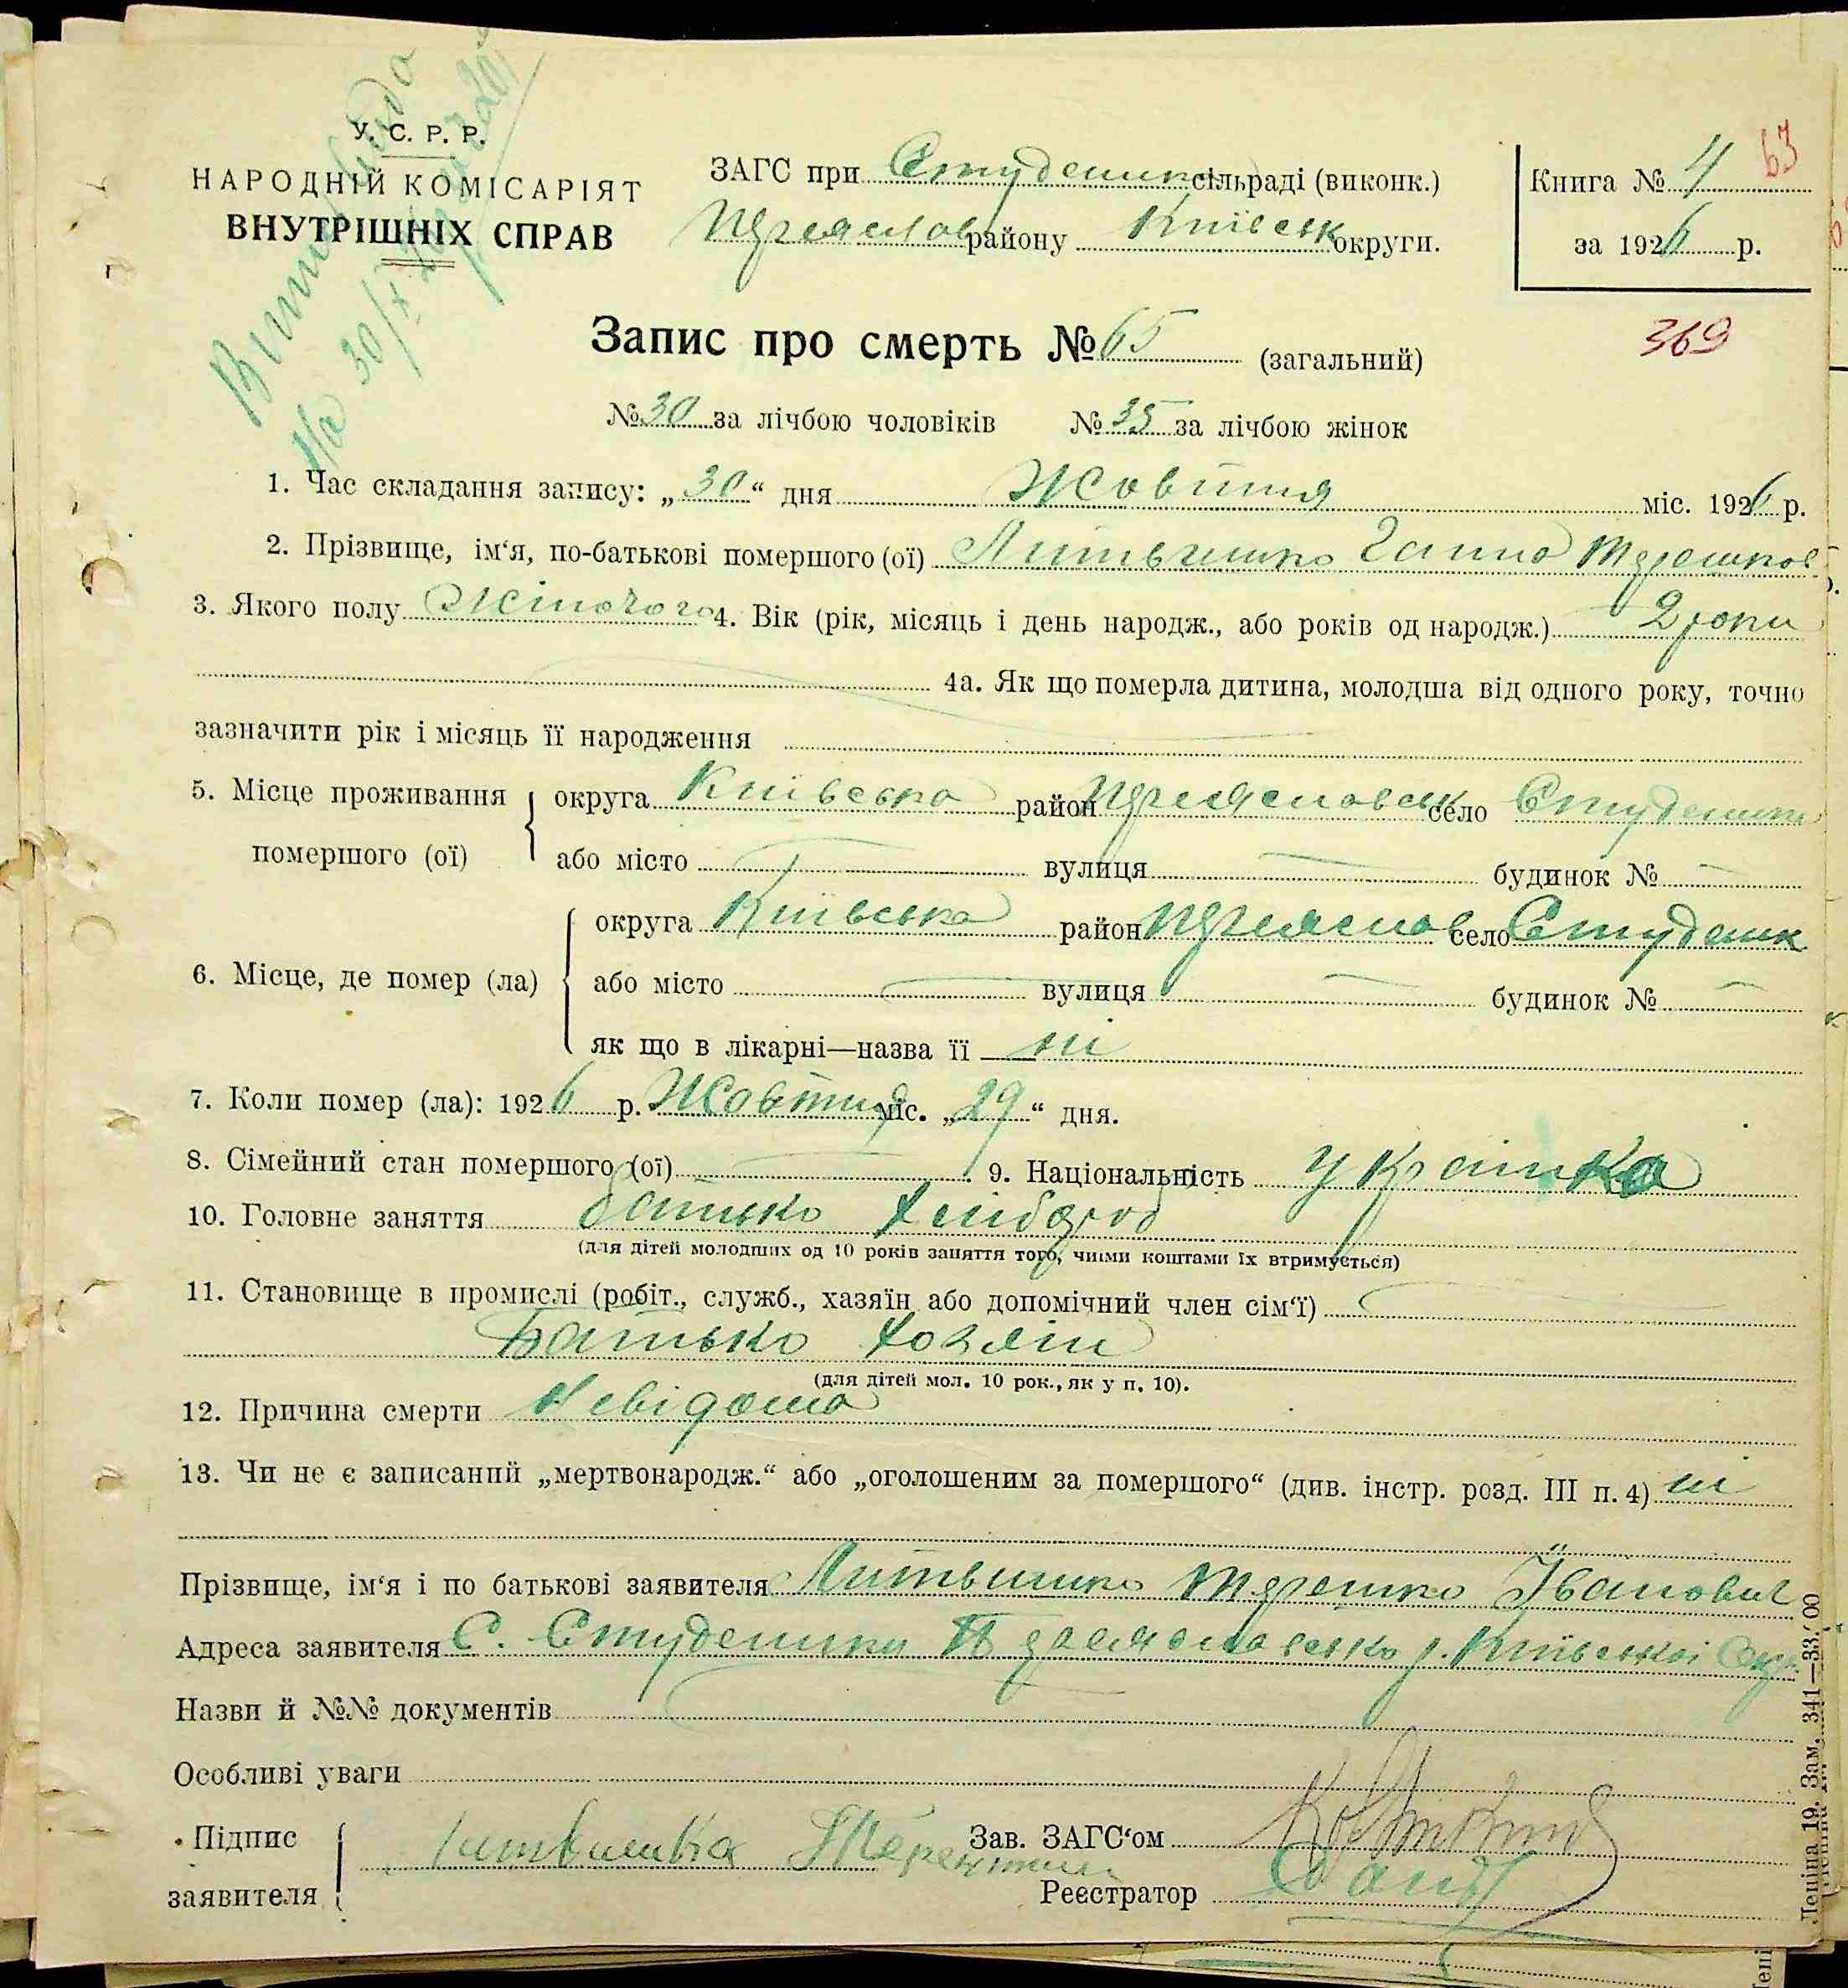 У. С. Р. Р.
НАРОДНІЙ КОМІСАРІЯТ
ВНУТРІШНІХ СПРАВ
ЗАГС при Студеник сільраді (виконк.)
Переяслов району Київськ округи.
Книга № 4 63
за 1926 р.
Запис про смерть № 65 (загальний)
369
№ 30 за лічбою чоловіків № 35 за лічбою жінок
1. Час складання запису: „30“ дня Жовтня міс. 1926 р.
2. Прізвище, ім‘я, по-батькові помершого (ої) Литвиненко Ганна Терешков
3. Якого полу Жіночого 4. Вік (рік, місяць і день народж., або років од народж.) 2 роки
4а. Як що померла дитина, молодша від одного року, точно
зазначити рік і місяць її народження
5. Місце проживання помершого (ої) округа Київська район Переясловськ село Студеники
або місто вулиця будинок №
6. Місце, де помер (ла) округа Київська район Переяслов село Студеник
або місто вулиця будинок №
як що в лікарні—назва її ні
7. Коли помер (ла): 1926 р. Жовтня міс. „29“ дня.
8. Сімейний стан помершого (ої) 9. Національність Українка
10. Головне заняття батько хлібороб
(для дітей молодших од 10 років заняття того, чиїми коштами їх втримується)
11. Становище в промислі (робіт., служб., хазяїн або допомічний член сім‘ї)
Батько хозяїн
(для дітей мол. 10 рок., як у п. 10).
12. Причина смерти Невідома
13. Чи не є записаний „мертвонародж.“ або „оголошеним за помершого“ (див. інстр. розд. III п. 4) ні
Прізвище, ім‘я і по батькові заявителя Терешко Іванович
Адреса заявителя С. Студеники р. Київської Окр.
Назви й №№ документів
Особливі уваги
Підпис заявителя Зав. ЗАГС‘ом
Реєстратор
Леніна 19. Зам. 341—33.